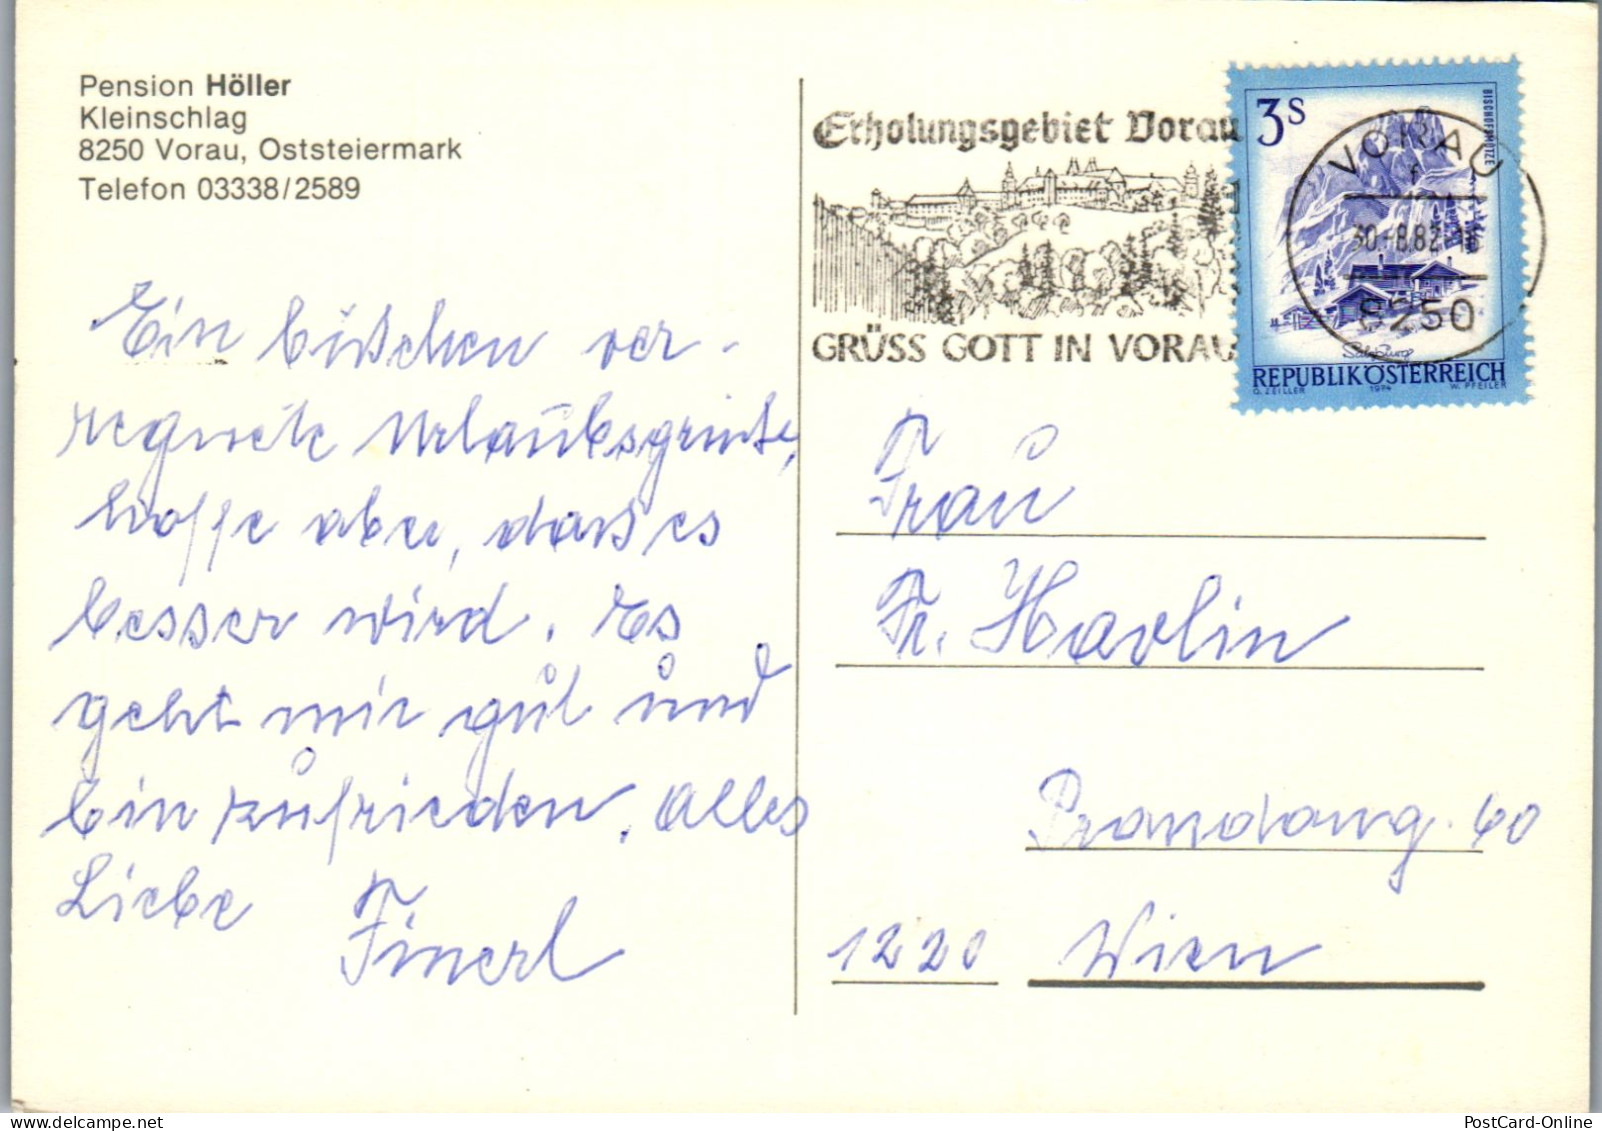 Pension Höller
Kleinschlag
8250 Vorau, Oststeiermark
Telefon 03338/2589
Ein bißchen ver-
regnete Urlaubsgrüße,
hoffe aber, daß es
besser wird. Es
geht mir gut und
bin zufrieden. Alles
Liebe Finerl
Erholungsgebiet Vorau
GRÜSS GOTT IN VORAU
3 S
BISCHOFSMÜTZE
VORAU
f
30.-8.82-16
8250
Salzburg
REPUBLIK ÖSTERREICH
O. ZEILLER 1974 W. PFEILER
Frau
Fr. Havlin
60
1220 Wien
PostCard-Online